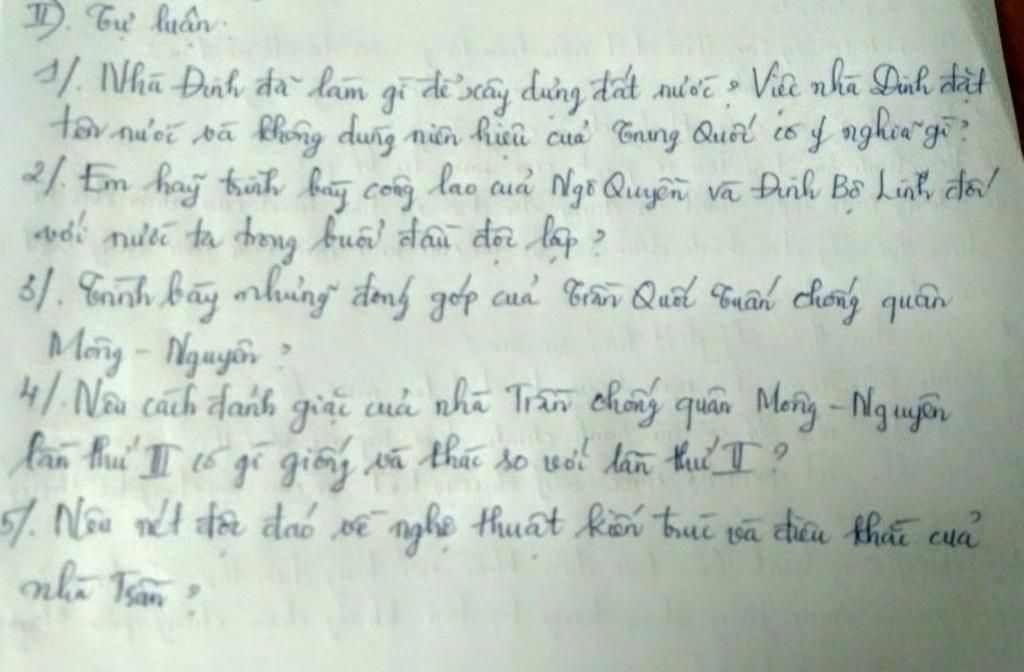 II). Tự luân.
1/. Nhà Đinh đã làm gì để xây dựng đất nước? Việc nhà Đinh đặt
tên nước và không dùng niên hiệu của Trung Quốc có ý nghĩa gì?
2/. Em hãy trình bày công lao của Ngô Quyền và Đinh Bộ Lĩnh đối
với nước ta trong buổi đầu độc lập?
3/. Trình bày những đóng góp của Trần Quốc Tuấn chống quân
Mông - Nguyên?
4/. Nêu cách đánh giặc của nhà Trần chống quân Mông - Nguyên
lần thứ III có gì giống và khác so với lần thứ II?
5/. Nêu nét độc đáo về nghệ thuật kiến trúc và điêu khắc của
nhà Trần?